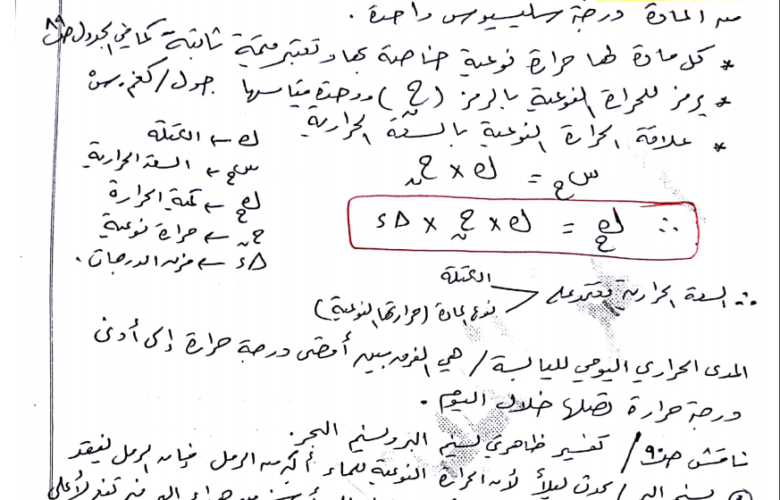 من المادة درجة سليسيوس واحدة .
* كل مادة لها حرارة نوعية خاصة بها وتعتبر قيمة ثابتة كما في الجدول ص ٨٩
* يرمز للحرارة النوعية بالرمز ( حن ) ووحدة قياسها جول/كغم.سْ
* علاقة الحرارة النوعية بالسعة الحرارية
سح = ك × حن
∴ كح = ك × حن × Δء
ك ← الكتلة
سح ← السعة الحرارية
كح ← كمية الحرارة
حن ← حرارة نوعية
Δء ← فرق الدرجات .
∴ السعة الحرارية تعتمد على
الكتلة
نوع المادة (حرارتها النوعية)
المدى الحراري اليومي لليابسة / هي الفرق بين أقصى درجة حرارة إلى أدنى
درجة حرارة تصلها خلال اليوم .
ناقش ص٩٠ / تفسير ظاهرتي نسيم البر ونسيم البحر.
نسيم البر / يحدث ليلاً لأن الحرارة النوعية للماء أكبر من الرمل فإن الرمل ليفقد